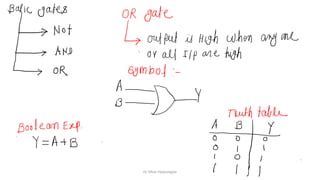 Basic gates
Not
AND
OR
OR gate
output is High when any one
or all I/p are high
Symbol :-
A
B
Y
Boolean Exp.
Y = A + B
Truth table
A B Y
0 0 0
0 1 1
1 0 1
1 1 1